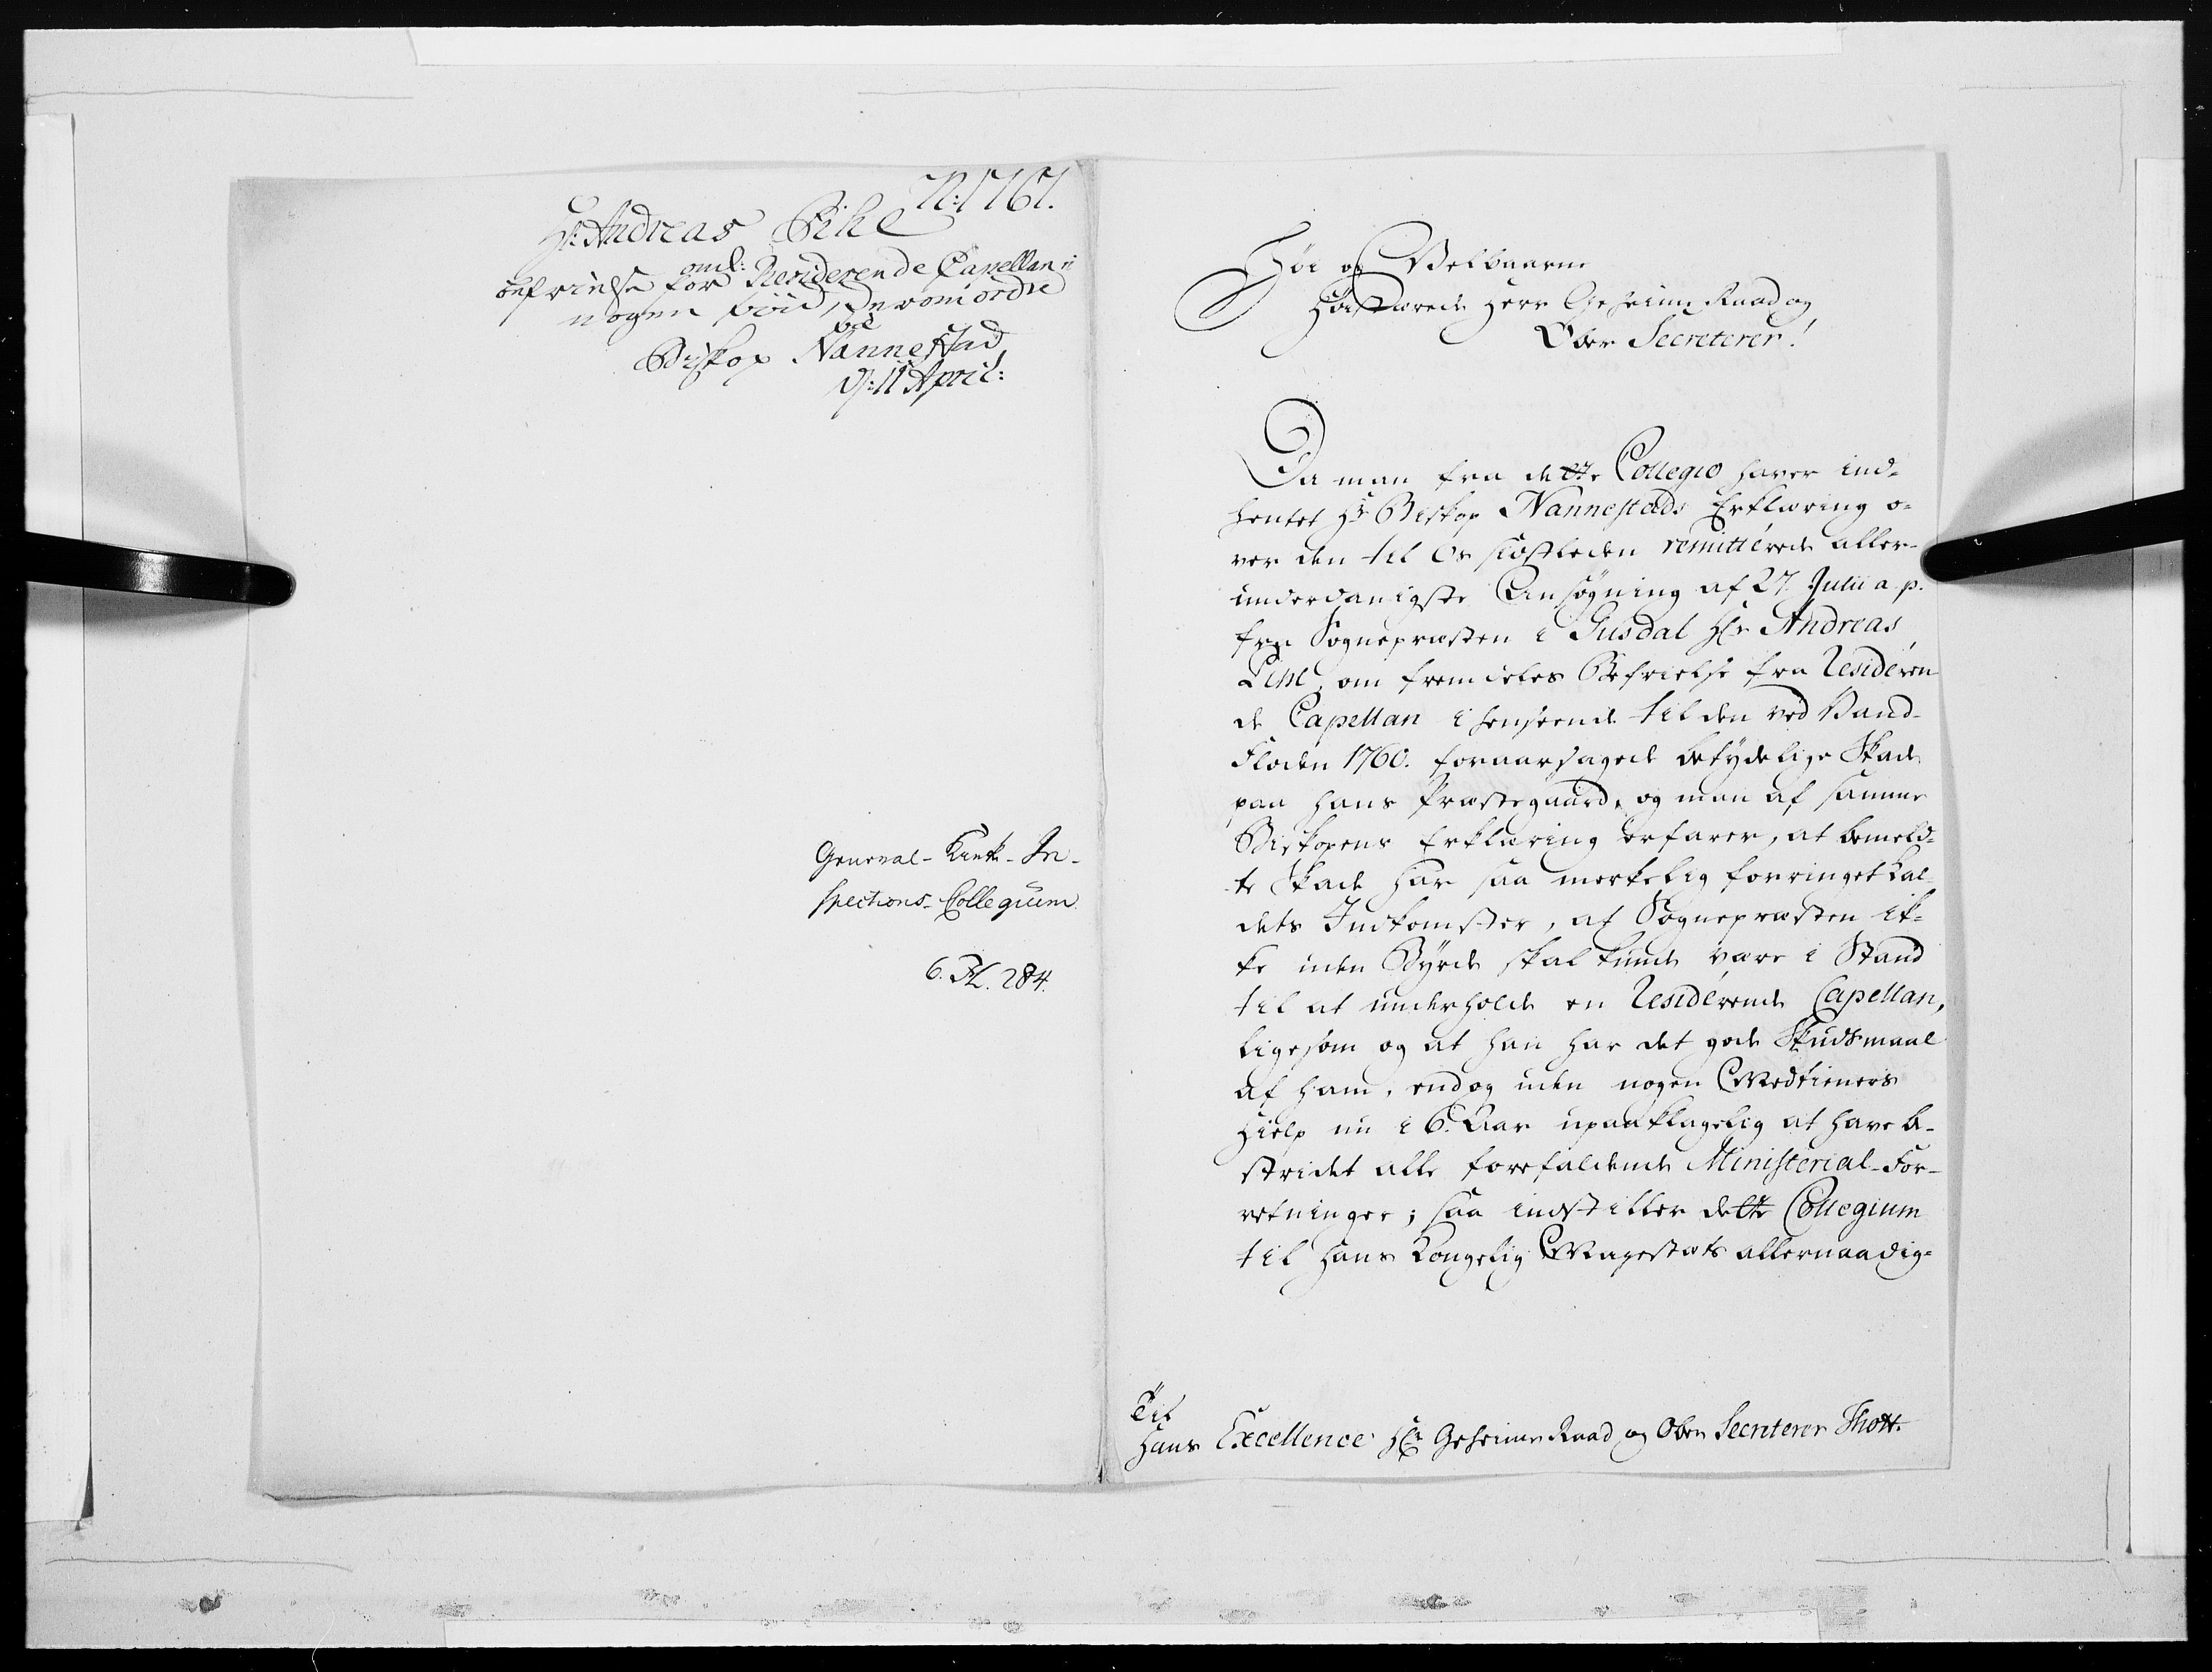 N: 1761.
Hr: Andreas Pihl
oml:
befrielse for Residerende Capellan ii
nogen tiid, derom ordre
bee
Biskop Nannestad
D: 11 April:
General-Kirke-In-
spections-Collegium.
6. H. 284.
Høi og Velbaarne
Høistærede Herr Geheime Raad og
Ober Secreterer!
Da man fra dette Collegio haver ind-
hentet Hr Biskop Nannestads Erklæring o-
ver den til os sidstleden remitterede aller-
underdanigste Ansøgning af 27. Julii a. p.
fra Sognepræsten i Gusdal Hr Andreas
Pihl, om fremdeles Befrielse fra Residéren
de Capellan i henseende til den ved Vand-
Floden 1760. foraarsagede betydelige Skade
paa hans Præstegaard, og man af samme
Biskopens Erklæring erfarer, at bemeld-
te Skade har saa merkelig forringet Kal-
dets Indkomster, at Sognepræsten ik-
ke uden Byrde skal kunde være i Stand
til at underholde en Residérende Capellan,
ligesom og at han har det gode Skudsmaal
af ham, endog uden nogen Medtieners
Hielp nu i 6. Aar upaaklagelig at have be-
stridet alle forefaldende Ministerial-For-
retninger; saa indstiller dette Collegium
til Hans Kongelig Majestæts allernaadig-
Til
Hans Excellence Hr Geheime Raad og Ober Secreterer Thott.